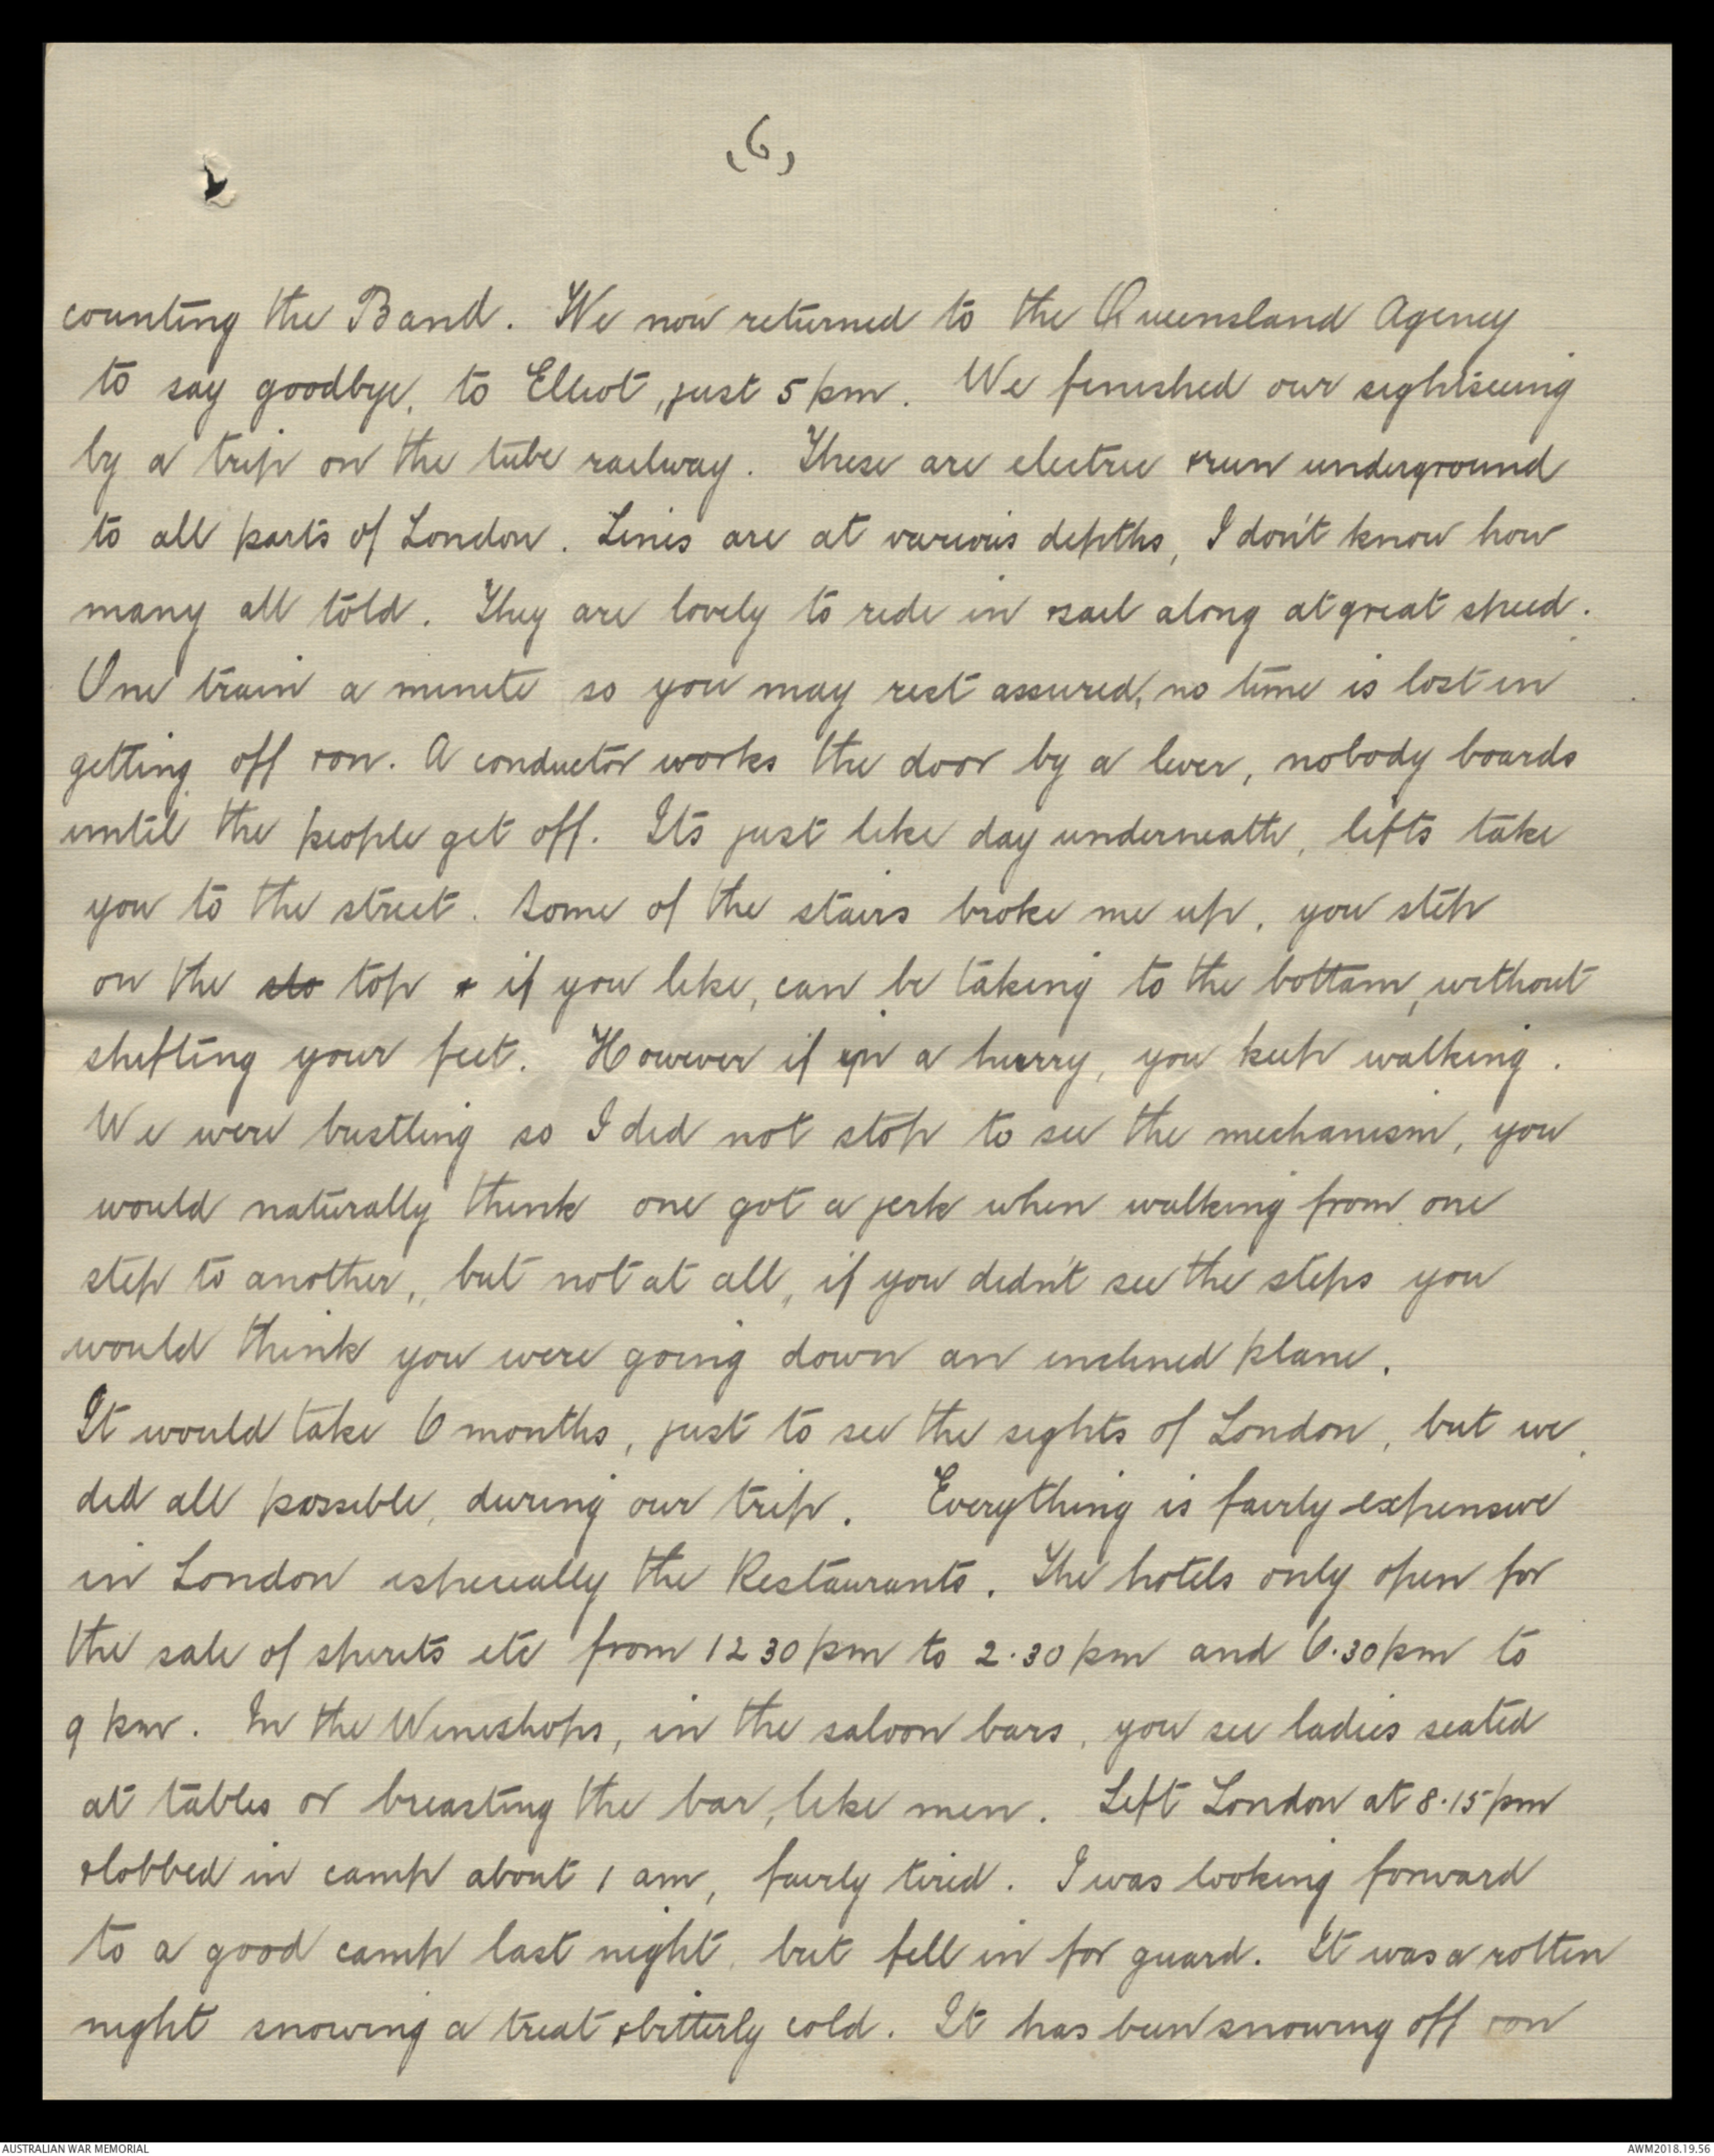 (6)
counting the Band. We now returned to the Queensland Agency
to say goodbye, to Elliot, just 5 pm. We finished our sightseeing
by a trip on the tube railway. These are electric & run underground
to all parts of London. Lines are at various depths, I don't know how
many all told. They are lovely to ride in & sail along at great speed.
One train a minute so you may rest assured, no time is lost in
getting off & on. A conductor works the door by a lever, nobody boards
until the people get off. Its just like day underneath, lifts take
you to the street. Some of the stairs broke me up, you step
on the sto top & if you like, can be taking to the bottam, without
shifting your feet. However if in a hurry, you keep walking.
We were bustling so I did not stop to see the mechanism, you
would naturally think one got a jerk when walking from one
step to another, but not at all, if you didn't see the steps you
would think you were going down an inclined plane.
It would take 6 months, just to see the sights of London, but we
did all possible, during our trip. Everything is fairly expensive
in London especially the Restaurants. The hotels only open for
the sale of spirits etc from 12 30 pm to 2.30 pm and 6.30 pm to
9 pm. In the Wineshops, in the saloon bars, you see ladies seated
at tables or breasting the bar, like men. Left London at 8.15 pm
& lobbed in camp about 1 am, fairly tired. I was looking forward
to a good camp last night, but fell in for guard. It was a rotten
night snowing a treat & bitterly cold. It has been snowing off & on
AUSTRALIAN WAR MEMORIAL
AWM2018.19.56